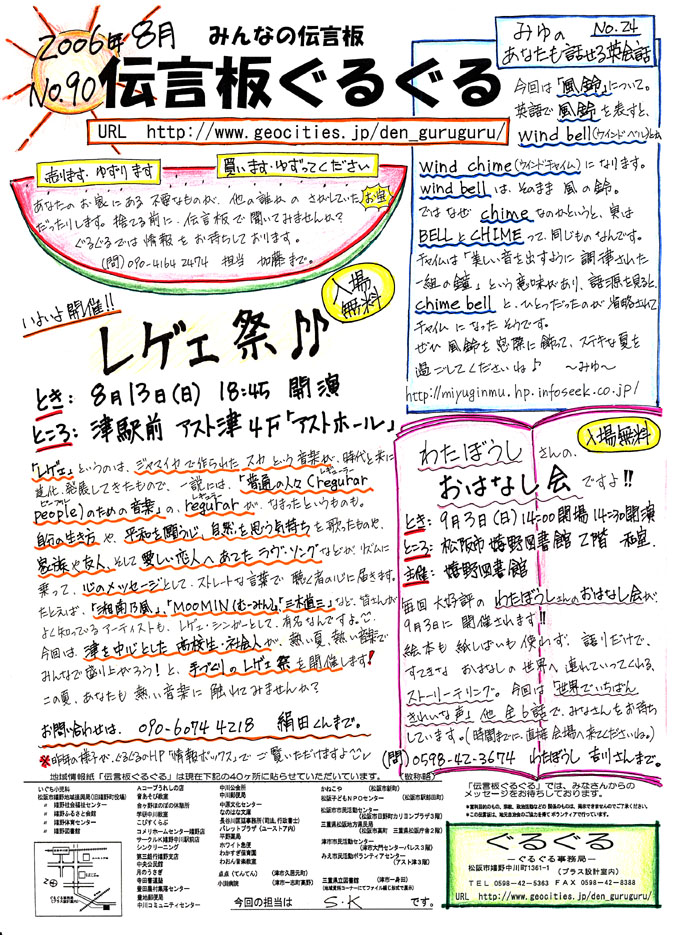 2006年 8月
No.90
みんなの伝言板
伝言板ぐるぐる
URL http://www.geocities.jp/den_guruguru/
売ります・ゆずります
買います・ゆずってください
あなたのお家にある不要なものが、他の誰かのさがしていたお宝
だったりします。捨てる前に、伝言板で聞いてみませんか？
ぐるぐるでは情報をお待ちしております。
(問)090-4164 2474 担当 加藤まで。
みゅの No.24
あなたも話せる英会話
今回は「風鈴」について。
英語で風鈴を表すと、
wind bell(ウインドベル)とか
wind chime(ウインドチャイム)になります。
wind bellは、そのまま風の鈴。
ではなぜ chimeなのかというと、実は
BELLとCHIMEって、同じものなんです。
チャイムは「美しい音を出すように調律された
一組の鐘」という意味があり、語源を見ると、
chime bellと、ひとつだったのが省略されて
チャイムになったそうです。
ぜひ風鈴を窓際に飾って、ステキな夏を
過ごしてくださいね♪ 〜みゅ〜
http://miyuginmu.hp.infoseek.co.jp/
いよいよ開催!!
入場無料
レゲエ祭♪♪
とき: 8月13日(日) 18:45 開演
ところ: 津駅前 アスト津4F「アストホール」
「レゲエ」というのは、ジャマイカで作られたスカという音楽が、時代と共に
進化、発展してきたもので、一説には、「普通の人々(regurar レギュラー
people ピープル)のための音楽」の、regurar レギュラーが、なまったというものも。
自分の生き方や、平和を願う心、自然を思う気持ちを歌ったものや、
家族や友人、そして愛しい恋人へあてたラヴ・ソングなどがリズムに
乗って、心のメッセージとして、ストレートな言葉で聴く者の心に届きます。
たとえば、「湘南乃風」、「MOOMIN(むーみん)」、「三木道三」など、皆さんが
よく知っているアーティストも、レゲエ・シンガーとして、有名なんですよ。
今回は、津を中心とした高校生・社会人が、熱い夏、熱い音楽で
みんなで盛り上がろう！と、手づくりのレゲエ祭を開催します！
この夏、あなたも熱い音楽に触れてみませんか？
お問い合わせは、090-6074 4218 絹田くんまで。
※昨年の様子が、ぐるぐるのHP「情報ボックス」でご覧いただけますよ
入場無料
わたぼうしさんの、
おはなし会ですよ!!
とき: 9月3日(日)14:00開場 14:30開演
ところ: 松阪市嬉野図書館 2階 和室.
主催: 嬉野図書館
毎回大好評のわたぼうしさんのおはなし会が、
9月3日に開催されます!!
絵本も紙しばいも使わず、語りだけで、
すてきなおはなしの世界へ連れていってくれる、
ストーリーテリング。今回は「世界でいちばん
きれいな声」他全6話で、みなさんをお待ち
しています。(時間までに、直接会場へ来てくださいね。)
(問)0598-42-3674 わたぼうし 吉川さんまで。
地域情報紙「伝言板ぐるぐる」は現在下記の40ヶ所に貼らせていただいています。 (敬称略)
いちち小児科
松阪市嬉野地域振興局(旧嬉野町役場)
〃 嬉野社会福祉センター
〃 嬉野ふるさと会館
〃 嬉野体育センター
〃 嬉野図書館
Aコープうれしの店
曽あそび歯家
台ヶ野ほのぼの休憩所
学研中川教室
こびすくらぶ
コメリホームセンター嬉野店
サークルK嬉野中川駅前店
シンクリーニング
第三銀行嬉野支店
中央公民館
月のうさぎ
寺田書道塾
豊田農村集落センター
豊地郵便局
中川コミュニティセンター
中川公会所
中川郵便局
中原文化センター
なのはな文庫
長谷川匡謡事務所(司法,行政書士)
パレットプラザ(ユーストア内)
平野薬局
ホワイト急便
わかすぎ保育園
わおん音楽教室
点点(てんてん) (津市久居元町)
小渕病院 (津市一志町高野)
かねこや (松阪市新町)
松阪子どもNPOセンター (松阪市駅部田町)
松阪市市民活動センター
(松阪市日野町カリヨンプラザ3階)
三重県松阪地方県民局
(松阪市高町 三重県松阪庁舎2階)
津市市民活動センター
(津市大門センターパレス3階)
みえ市民活動ボランティアセンター
(アスト津3階)
三重県立図書館 (津市一身田)
(地域資料コーナーにてファイル綴じ形式で表示)
今回の担当は S.K です。
「伝言板ぐるぐる」では、みなさんからの
メッセージをお待ちしております。
ぐるぐる
ーぐるぐる事務局ー
松阪市嬉野中川町1361-1 (プラス設計室内)
TEL 0598-42-5363 FAX 0598-42-8388
URL http://www.geocities.jp/den_guruguru/